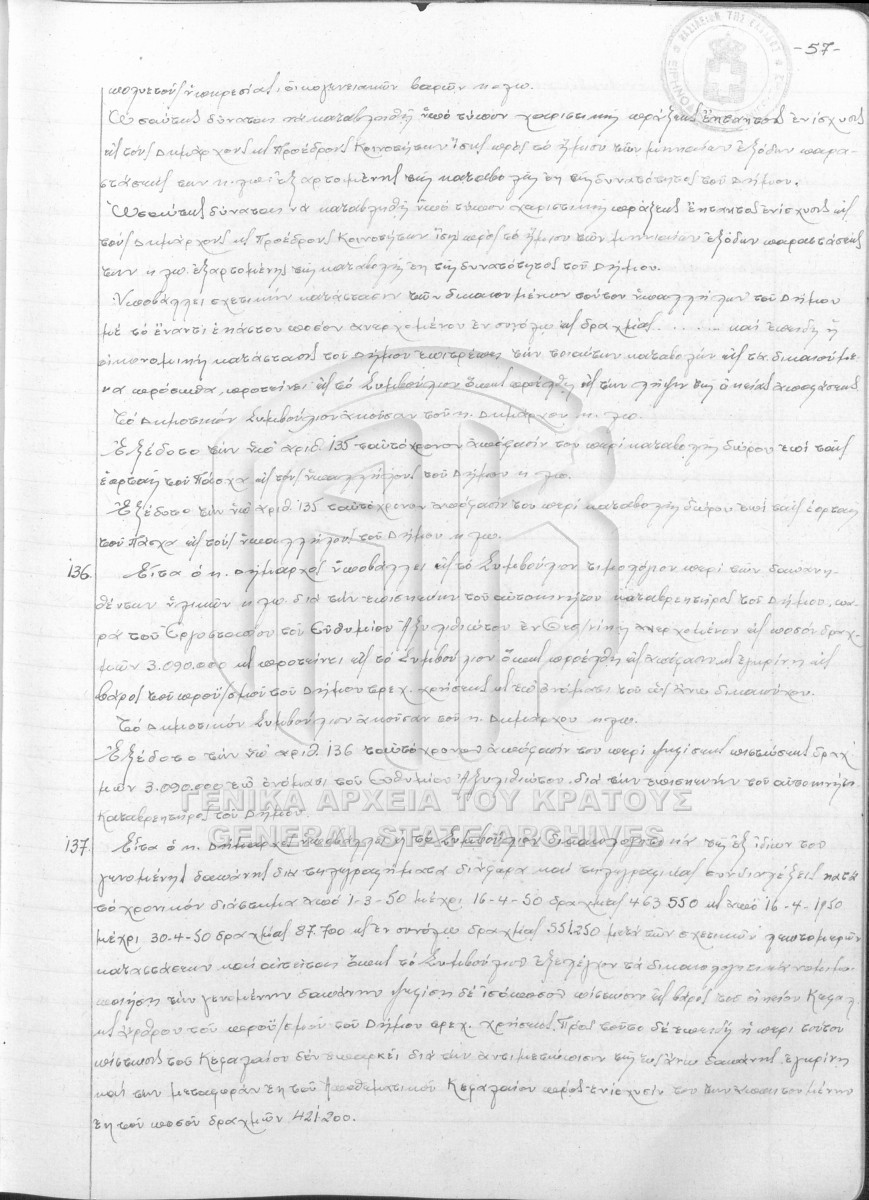 -57-
πολυετοῦς ὑπηρεσίας, οἰκογενειακῶν βαρῶν κ.λ.π.
Ὡσαύτως δύναται νὰ καταβληθῇ ὑπὸ τύπον χαριστικῆς πράξεως ἔκτακτος ἐνίσχυσις
εἰς τοὺς Δημάρχους καὶ Προέδρους Κοινοτήτων ἴση πρὸς τὸ ἥμισυ τῶν μηνιαίων ἐξόδων παρα-
στάσεως των κ.λ.π. ἐξαρτομένης τῆς καταβολῆς ἐκ τῆς δυνατότητος τοῦ Δήμου.
Ὡσαύτως δύναται νὰ καταβληθῇ ὑπὸ τύπον χαριστικῆς πράξεως ἔκτακτος ἐνίσχυσις εἰς
τοὺς Δημάρχους καὶ Προέδρους Κοινοτήτων ἴση πρὸς τὸ ἥμισυ τῶν μηνιαίων ἐξόδων παραστάσεώς
των κ.λ.π. ἐξαρτομένης τῆς καταβολῆς ἐκ τῆς δυνατότητος τοῦ Δήμου.
Ὑποβάλλει σχετικὴν κατάστασιν τῶν δικαιουμένων τούτου ὑπαλλήλων τοῦ Δήμου
μὲ τὸ ἔναντι ἑκάστου ποσὸν ἀνερχομένου ἐν συνόλῳ εἰς δραχμὰς ........ καὶ ἐπειδὴ ἡ
οἰκονομικὴ κατάστασις τοῦ Δήμου ἐπιτρέπει τὴν τοιαύτην καταβολὴν εἰς τὰ δικαιούμε-
να πρόσωπα, προτείνει εἰς τὸ Συμβούλιον ὅπως προέλθῃ εἰς τὴν λῆψιν τῆς οἰκείας ἀποφάσεως
Τὸ Δημοτικὸν Συμβούλιον ἀκοῦσαν τοῦ κ. Δημάρχου κ.λ.π.
Ἐξέδοτο τὴν ὑπ' ἀριθ. 135 ταὐτόχρονον ἀπόφασίν του περὶ καταβολῆς δώρου ἐπὶ ταῖς
ἑορταῖς τοῦ Πάσχα εἰς τοὺς ὑπαλλήλους τοῦ Δήμου κ.λ.π.
Ἐξέδοτο τὴν ὑπ' ἀριθ. 135 ταὐτόχρονον ἀπόφασίν του περὶ καταβολῆς δώρου ἐπὶ ταῖς ἑορταῖς
τοῦ Πάσχα εἰς τοὺς ὑπαλλήλους τοῦ Δήμου κ.λ.π.
136. Εἶτα ὁ κ. Δήμαρχος ὑποβάλλει εἰς τὸ Συμβούλιον τιμολόγιον περὶ τῶν δαπανη-
θέντων ὑλικῶν κ.λ.π. διὰ τὴν ἐπισκευὴν τοῦ αὐτοκινήτου καταβρεκτῆρος τοῦ Δήμου, πα-
ρὰ τοῦ Ἐργοστασίου τοῦ Εὐθυμίου Ἀξυλιθιώτου ἐν Θεσ/νίκῃ ἀνερχομένου εἰς ποσὸν δραχ-
μῶν 3.090.000 καὶ προτείνει εἰς τὸ Συμβούλιον ὅπως προέλθῃ εἰς ἀπόφασιν καὶ ἐγκρίνῃ εἰς
βάρος τοῦ προϋ/σμοῦ τοῦ Δήμου τρεχ. χρήσεως καὶ ἐπ' ὀνόματι τοῦ εἰς ἄνω δικαιούχου.
Τὸ Δημοτικὸν Συμβούλιον ἀκοῦσαν τοῦ κ. Δημάρχου κ.λ.π.
Ἐξέδοτο τὴν ὑπ' ἀριθ. 136 ταὐτόχρονον ἀπόφασίν του περὶ ψηφίσεως πιστώσεως δραχ-
μῶν 3.090.000 ἐπ' ὀνόματι τοῦ Εὐθυμίου Ἀξυλιθιώτου διὰ τὴν ἐπισκευὴν τοῦ αὐτοκινήτου
Καταβρεκτῆρος τοῦ Δήμου.
137. Εἶτα ὁ κ. Δήμαρχος ὑποβάλλει εἰς τὸ Συμβούλιον δικαιολογητικὰ τῆς ἐξ ἰδίων του
γενομένης δαπάνης διὰ τηλεγραφήματα διάφορα καὶ τηλεγραφικὰς συνδιαλέξεις κατὰ
τὸ χρονικὸν διάστημα ἀπὸ 1-3-50 μέχρι 16-4-50 δραχμὰς 463550 καὶ ἀπὸ 16-4-1950
μέχρι 30-4-50 δραχμὰς 87.700 καὶ ἐν συνόλῳ δραχμὰς 551250 μετὰ τῶν σχετικῶν λεπτομερῶν
καταστάσεων καὶ αἰτεῖται ὅπως τὸ Συμβούλιον ἐξελέγχον τὰ δικαιολογητικὰ νομιμο-
ποιήσῃ τὴν γενομένην δαπάνην ψηφίσῃ δὲ ἰσόποσον πίστωσιν εἰς βάρος τοῦ οἰκείου Κεφαλ.
καὶ ἄρθρου τοῦ προϋ/σμοῦ τοῦ Δήμου τρεχ. χρήσεως. Πρὸς τοῦτο δὲ ἐπειδὴ ἡ περὶ τούτου
πίστωσις τοῦ Κεφαλαίου δὲν ἐπαρκεῖ διὰ τὴν ἀντιμετώπισιν τῆς εἰς ἄνω δαπάνης ἐγκρίνῃ
καὶ τὴν μεταφορὰν ἐκ τοῦ ἀποθεματικοῦ Κεφαλαίου πρὸς ἐνίσχυσίν του τῶν ἀπαιτουμένων
ἐκ τοῦ ποσοῦ δραχμῶν 421200.
ΓΕΝΙΚΑ ΑΡΧΕΙΑ ΤΟΥ ΚΡΑΤΟΥΣ
GENERAL STATE ARCHIVES